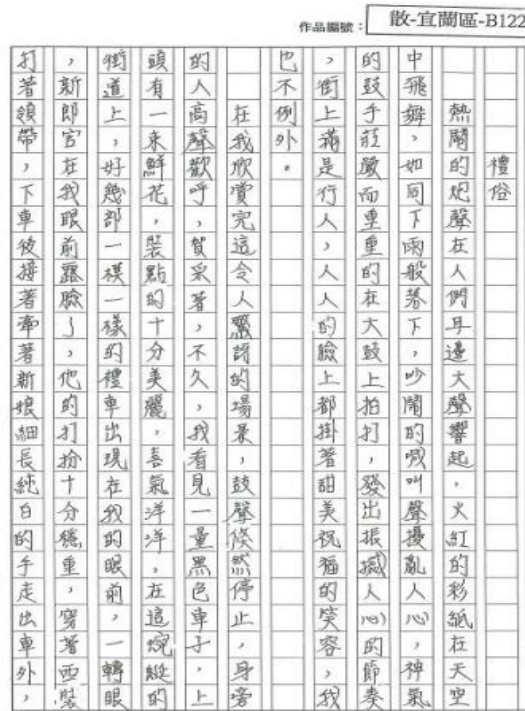 作品編號：散-宜蘭區-B122
禮俗
熱鬧的炮聲在人們耳邊大聲響起，火紅的彩紙在天空
中飛舞，如同下雨般落下，吵鬧的喊叫聲擾亂人心，神氣
的鼓手莊嚴而重重的在大鼓上拍打，發出振撼人心的節奏
，街上滿是行人，人人的臉上都掛著甜美祝福的笑容，我
也不例外。
在我欣賞完這令人驚訝的場景，鼓聲倏然停止，身旁
的人高聲歡呼，賀采著，不久，我看見一量黑色車子，上
頭有一朵鮮花，裝點的十分美麗，喜氣洋洋，在這蜿蜒的
街道上，好幾部一模一樣的禮車出現在我的眼前，一轉眼
，新郎官在我眼前露臉了，他的打扮十分穩重，穿著西裝
打著領帶，下車後接著牽著新娘細長純白的手走出車外，